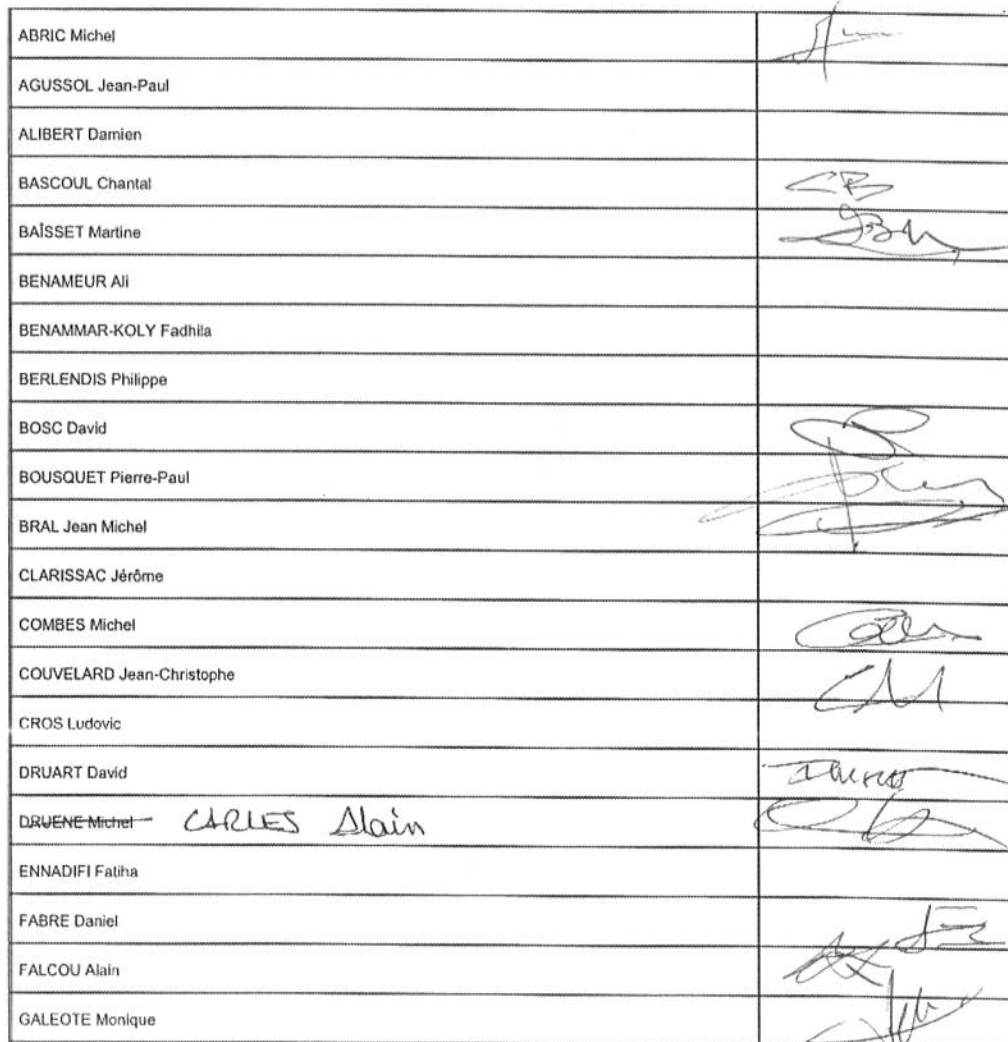 ABRIC Michel
AGUSSOL Jean-Paul
ALIBERT Damien
BASCOUL Chantal CB
BAÎSSET Martine
BENAMEUR Ali
BENAMMAR-KOLY Fadhila
BERLENDIS Philippe
BOSC David
BOUSQUET Pierre-Paul
BRAL Jean Michel
CLARISSAC Jérôme
COMBES Michel
COUVELARD Jean-Christophe
CROS Ludovic
DRUART David
DRUENE Michel CARLES Alain
ENNADIFI Fatiha
FABRE Daniel
FALCOU Alain
GALEOTE Monique